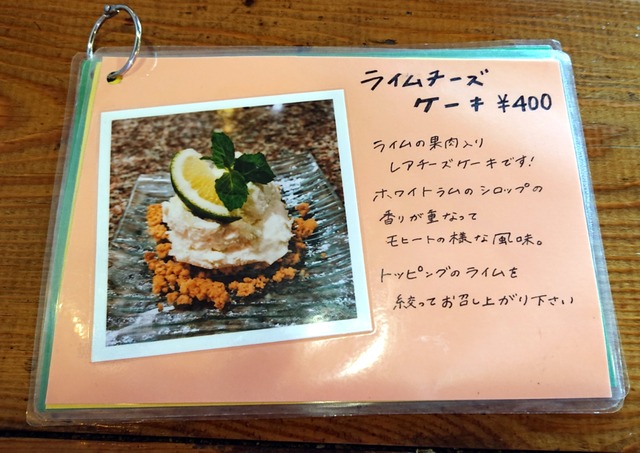 ライムチーズ
ケーキ ¥400
ライムの果肉入り
レアチーズケーキです!
ホワイトラムのシロップの
香りが重なって
モヒートの様な風味。
トッピングのライムを
絞ってお召し上がり下さい